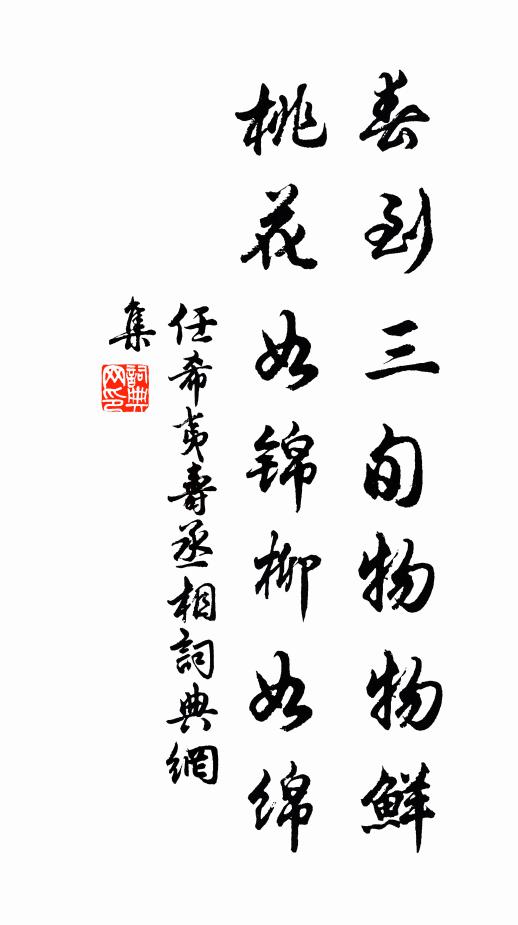 春到三旬物物鲜
桃花如锦柳如绵
任希夷壽丞相詞典網
集
詞典
网印